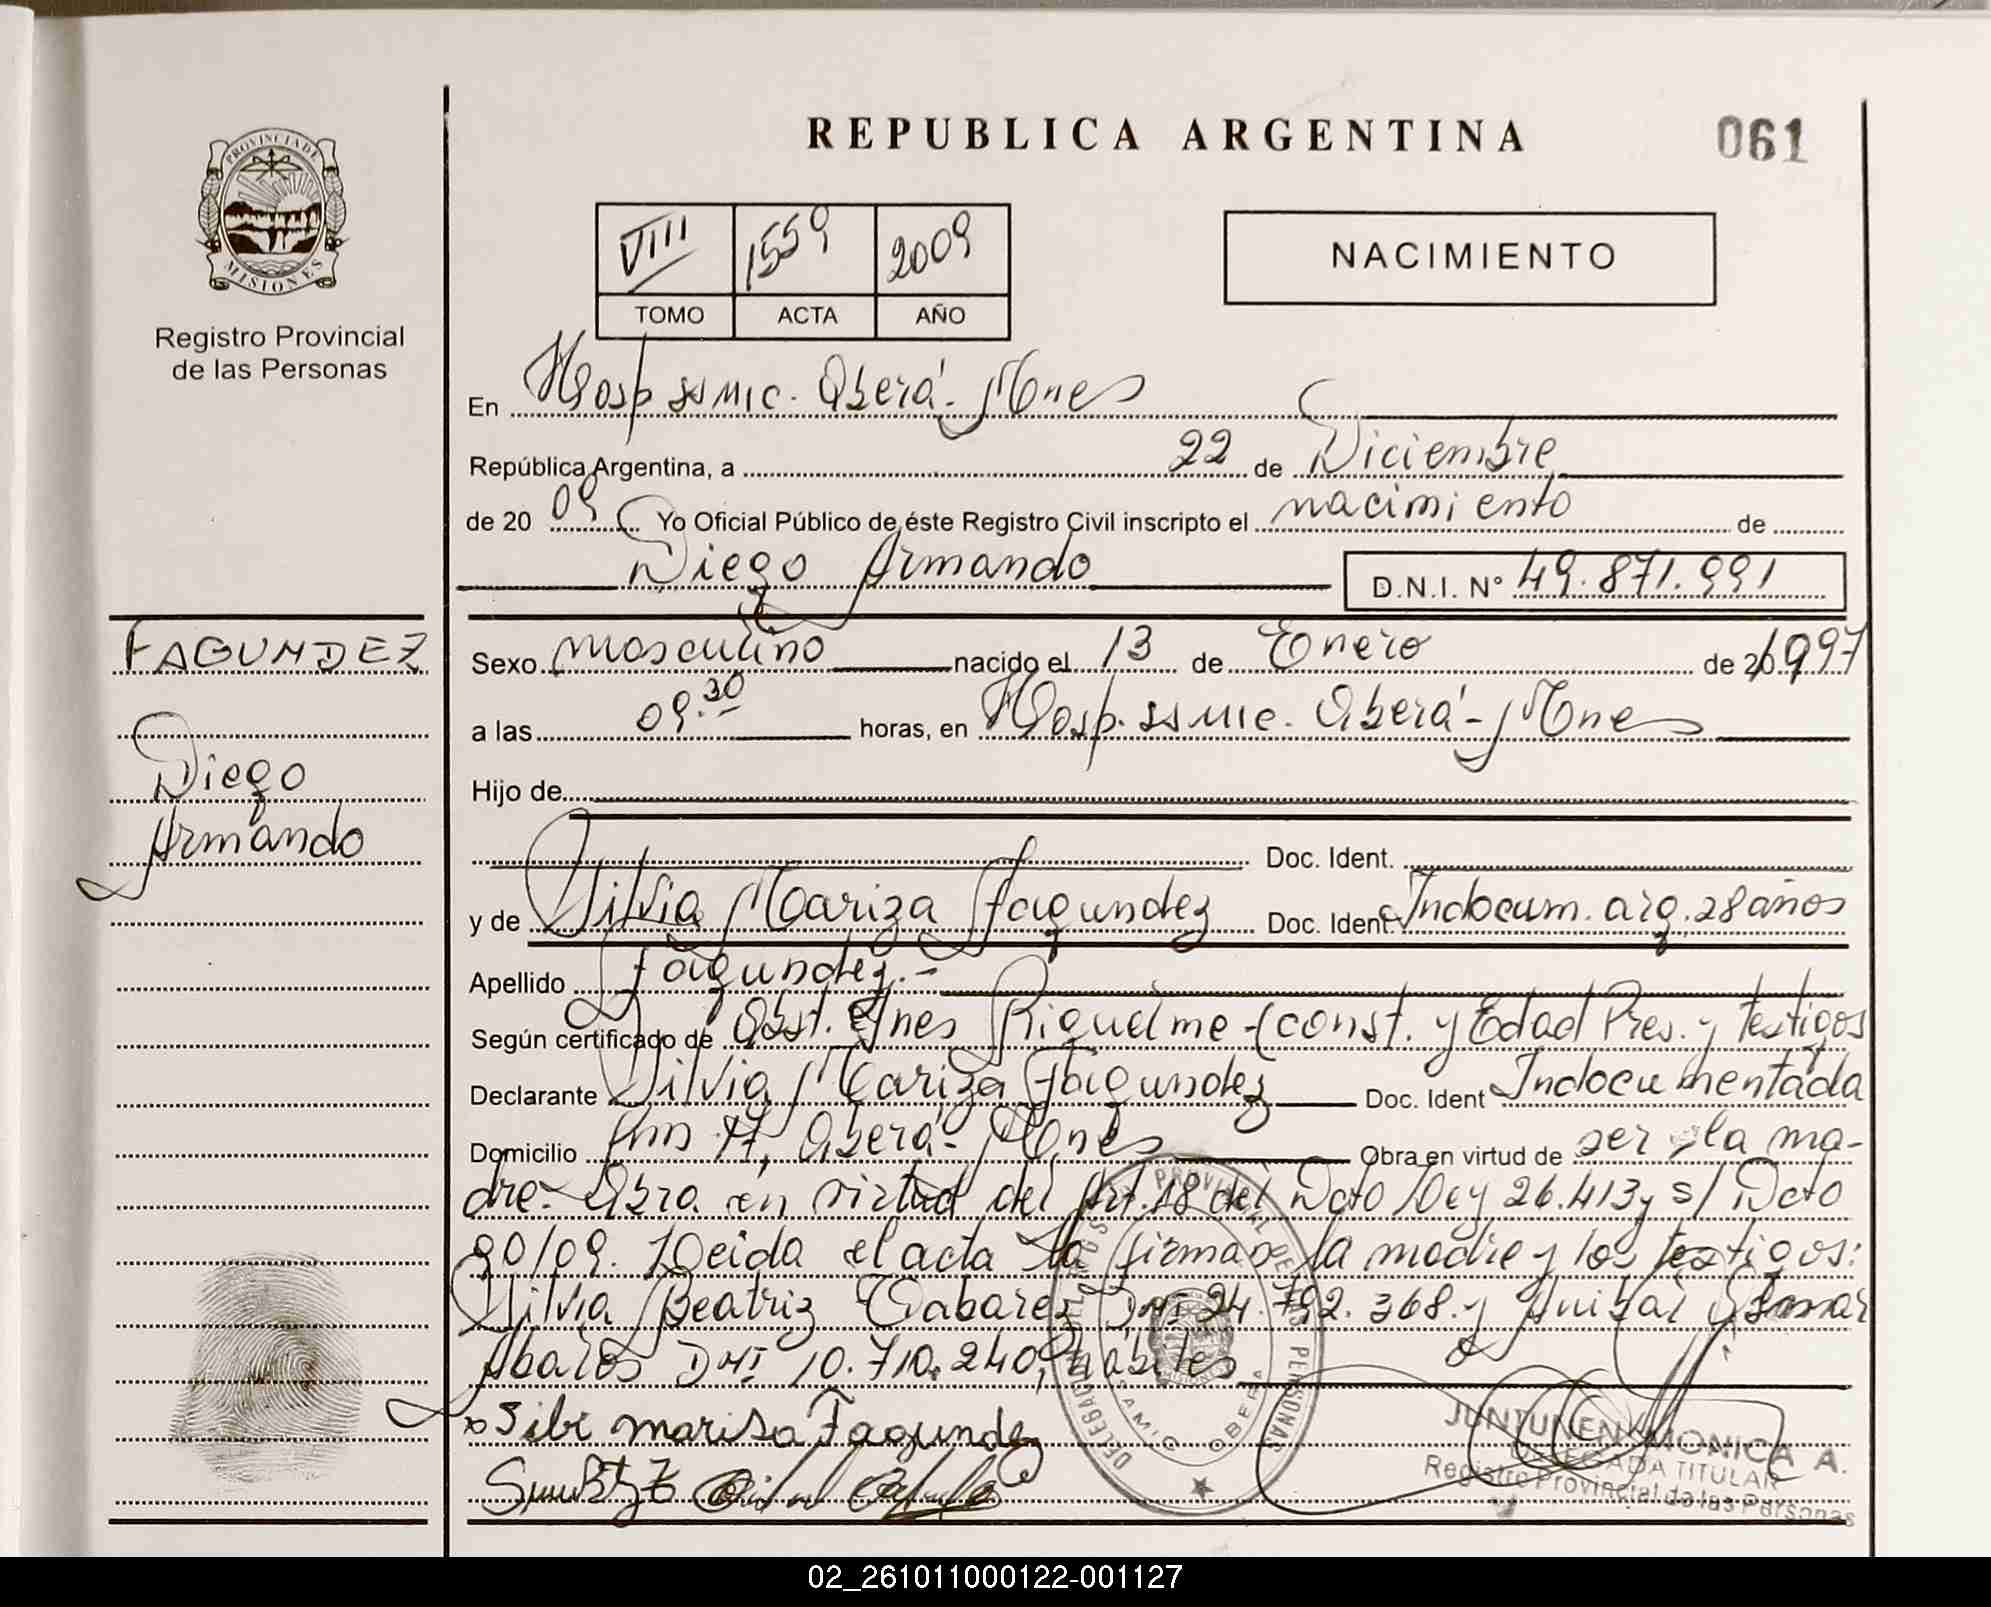 PROVINCIA DE
MISIONES
Registro Provincial
de las Personas
FAGUNDEZ
Diego
Armando
REPUBLICA ARGENTINA
061
VIII 1559 2009
TOMO ACTA AÑO
NACIMIENTO
En Hosp SSMIC. Oberá - Mnes
República Argentina, a 22 de Diciembre
de 20 09 Yo Oficial Público de éste Registro Civil inscripto el nacimiento de
Diego Armando D.N.I. N° 49.871.991
Sexo masculino nacido el 13 de Enero de 1997
a las 09.30 horas, en Hosp. SSMIC. Oberá - Mnes
Hijo de
Doc. Ident.
y de Silvia Mariza Fagundez Doc. Ident. Indocum. arg. 28 años
Apellido Fagundez.-
Según certificado de Obst. Ines Riquelme - (const. y Edad Pres. y testigos
Declarante Silvia Mariza Fagundez Doc. Ident Indocumentada
Domicilio Oberá - Mnes Obra en virtud de ser la ma-
dre - Obra en virtud del Art. 18 del Dcto Ley 26.413 y s/ Dcto
90/09. Leida el acta la firman la madre y los testigos:
Silvia Beatriz Tabarez DNI 24.792.368. y Anibal Omar
Abalos DNI 10.710.240, hábiles
Silvi marisa Fagundez
PROVINCIAL DE LAS PERSONAS
SAMIC OBERA
JUNTUNEN MONICA A.
DELEGADA TITULAR
Registro Provincial de las Personas
02_261011000122-001127